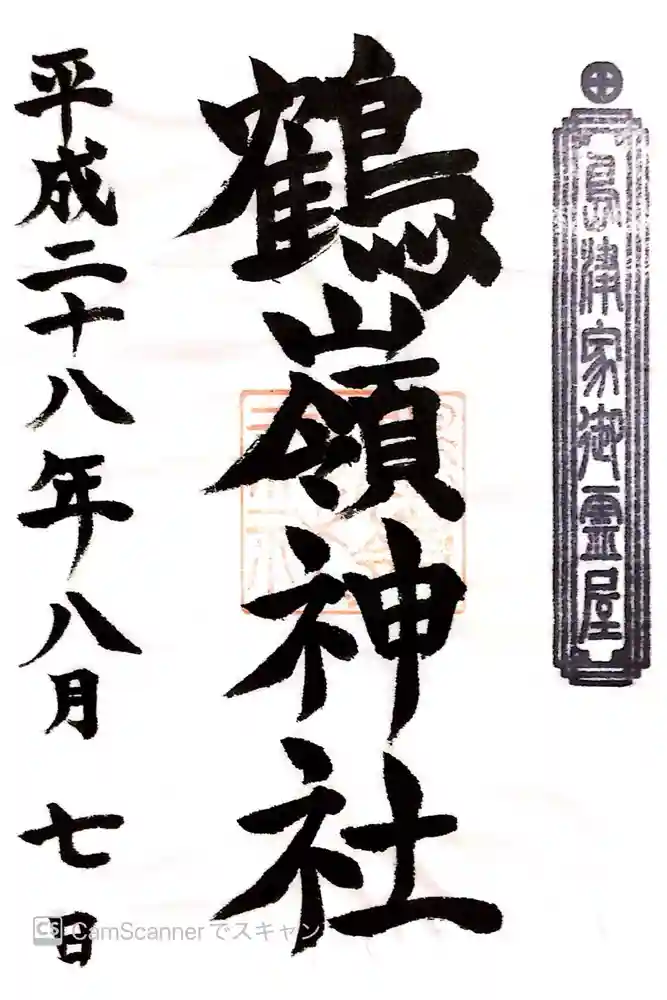 島津家御霊屋
鶴嶺神社
平成二十八年八月七日
CS CamScannerでスキャン